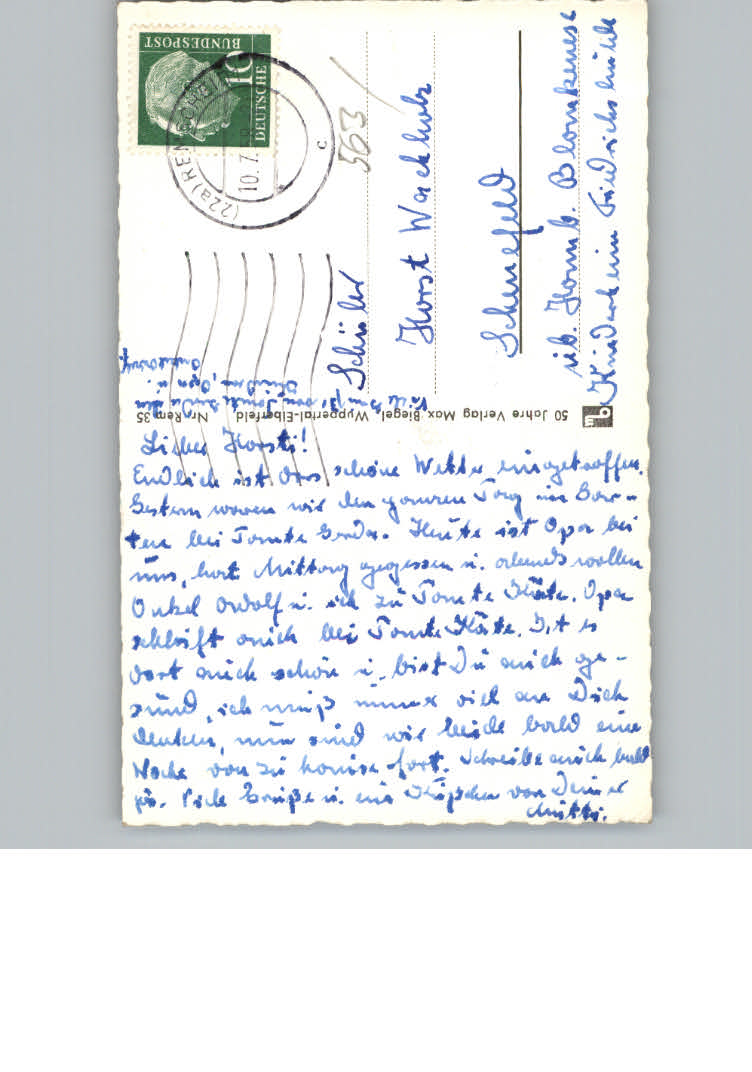 DEUTSCHE
BUNDESPOST
10
(22a) REMSCHEID
10.7.58
c
563
Schüler
Horst
Schenefeld
üb. Hamb. Blankenese
Kinderheim Friedrichshulde
50 Jahre Verlag Max Biegel, Wuppertal-Elberfeld Nr. Rem 35
mb
Viele von Tante Gerda
Opa u.
Lieber Horsti!
Endlich ist das schöne Wetter eingetroffen.
Gestern waren wir den ganzen Tag im Gar-
ten bei Tante Gerda. Heute ist Opa bei
uns, hat Mittag gegessen u. abends wollen
Onkel Adolf u. ich zu Tante Käte. Opa
schläft auch bei Tante Käte. Ist es
dort auch schön u. bist Du auch ge-
sund, ich muß immer viel an Dich
denken, nun sind wir beide bald eine
Woche von zu Hause fort. Schreibe auch bald
Viele Grüße u. ein Küßchen von Deiner
Mutti.